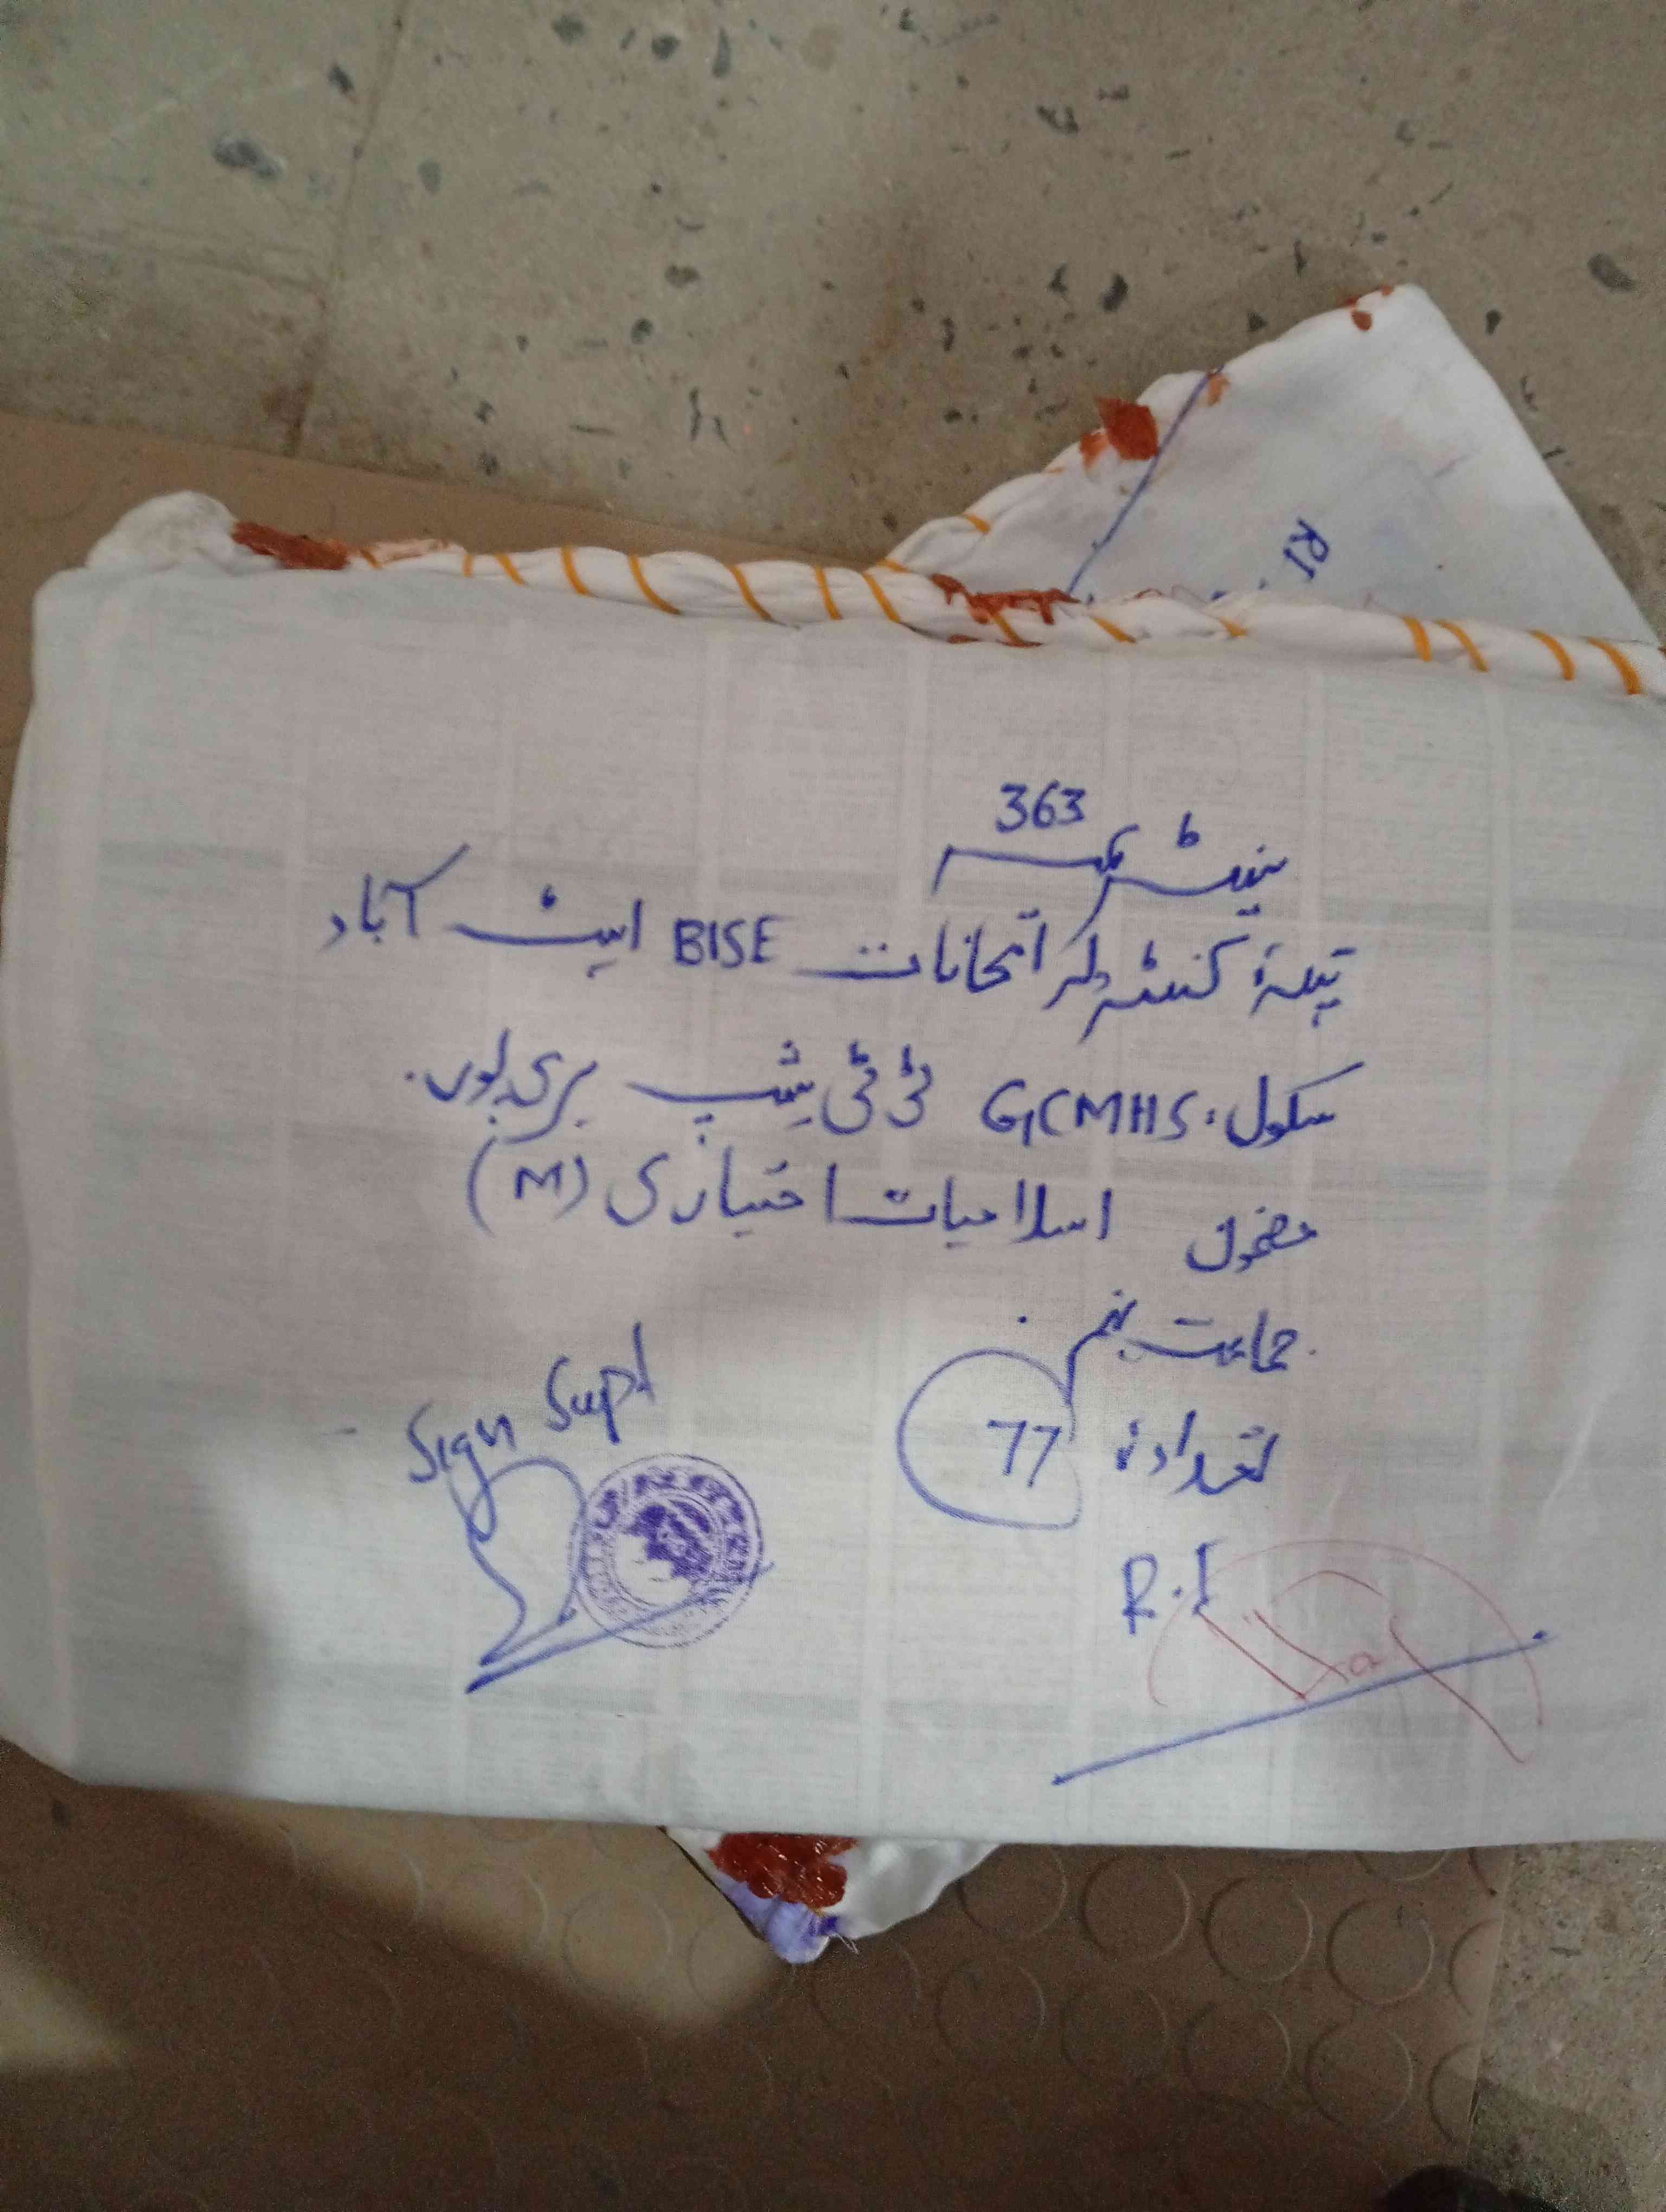 RI
363
سینٹر نمبر
پتہ: کنٹرولر امتحانات BISE ایبٹ آباد
سکول: GCMHS ٹی ٹی شپ ہری پور.
مضمون اسلامیات اختیاری (M)
جماعت نہم.
تعداد: 77
Sign Supt
R.I